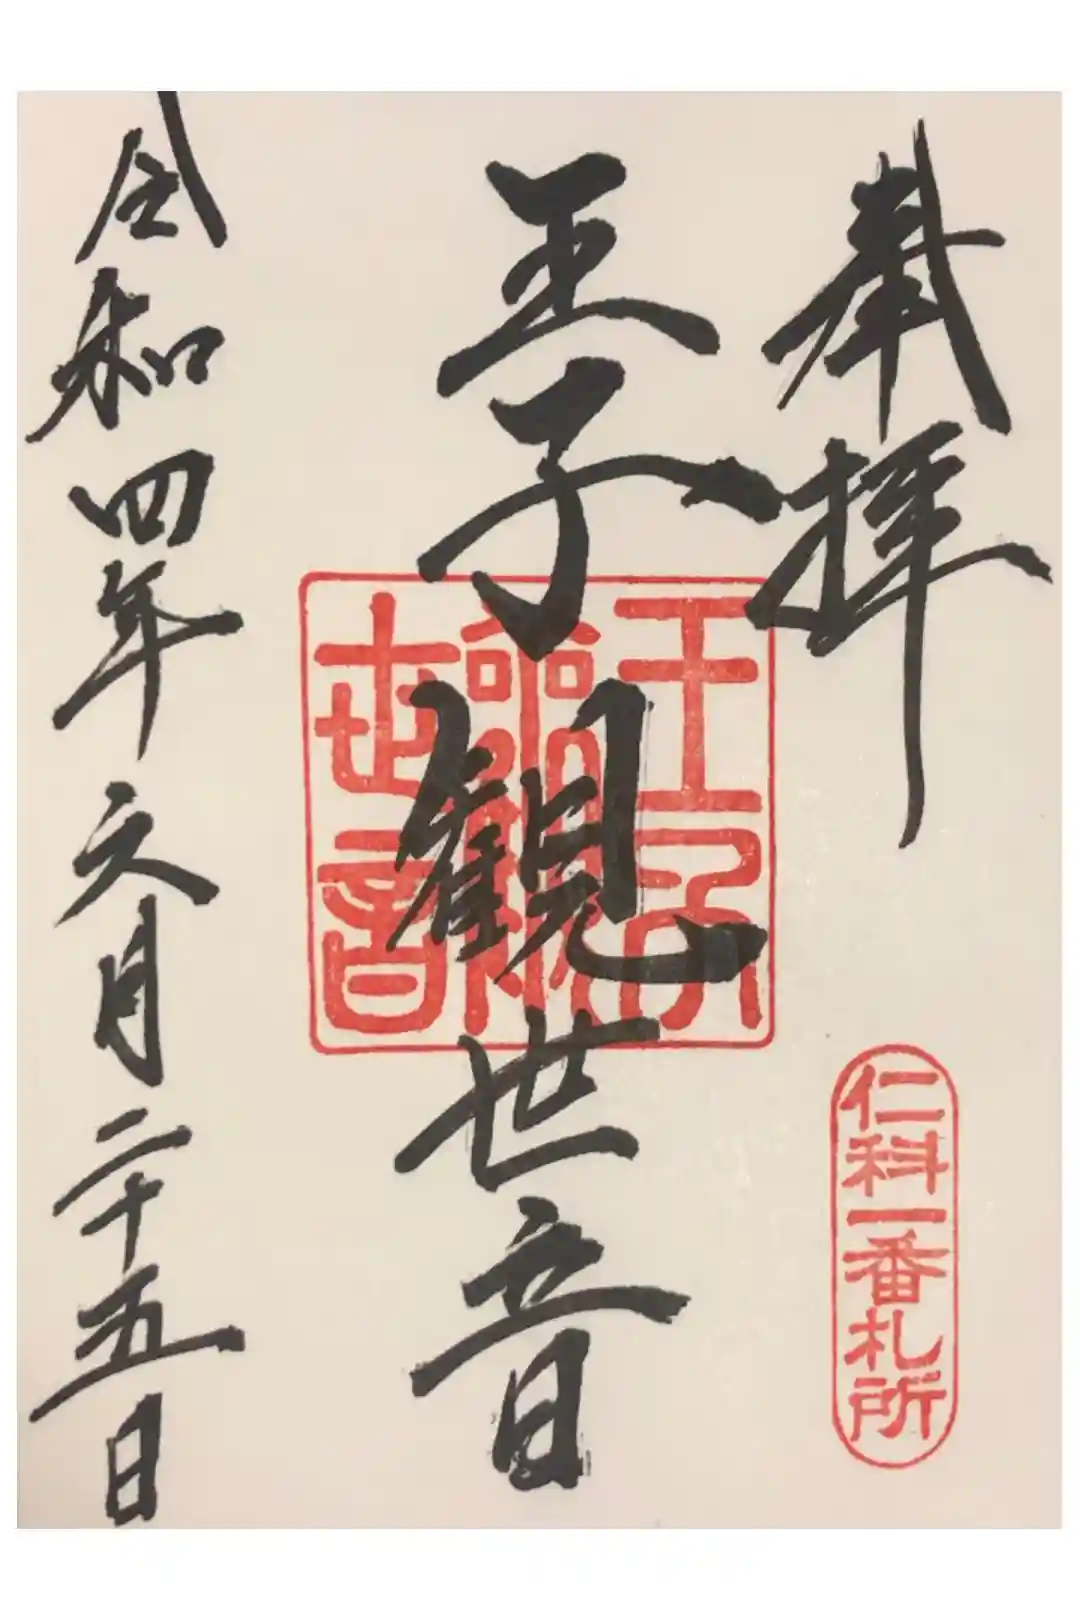 奉拝
仁科一番札所
王子観世音
王子
世音
令和四年六月二十五日